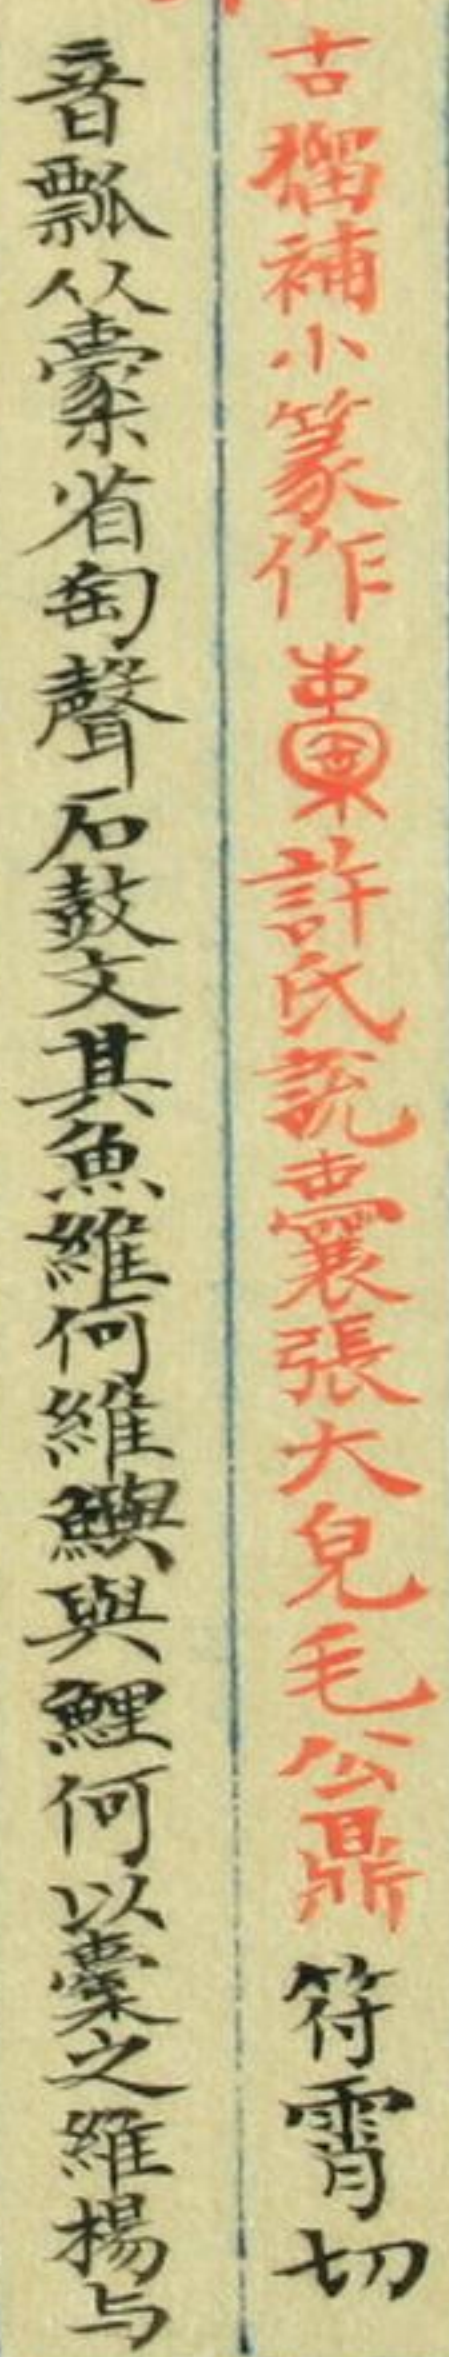 古籀補小篆作橐許氏說囊張大皃毛公鼎符霄切
音瓢从橐省匋聲石鼓文其魚維何維鱮與鯉何以橐之維楊与